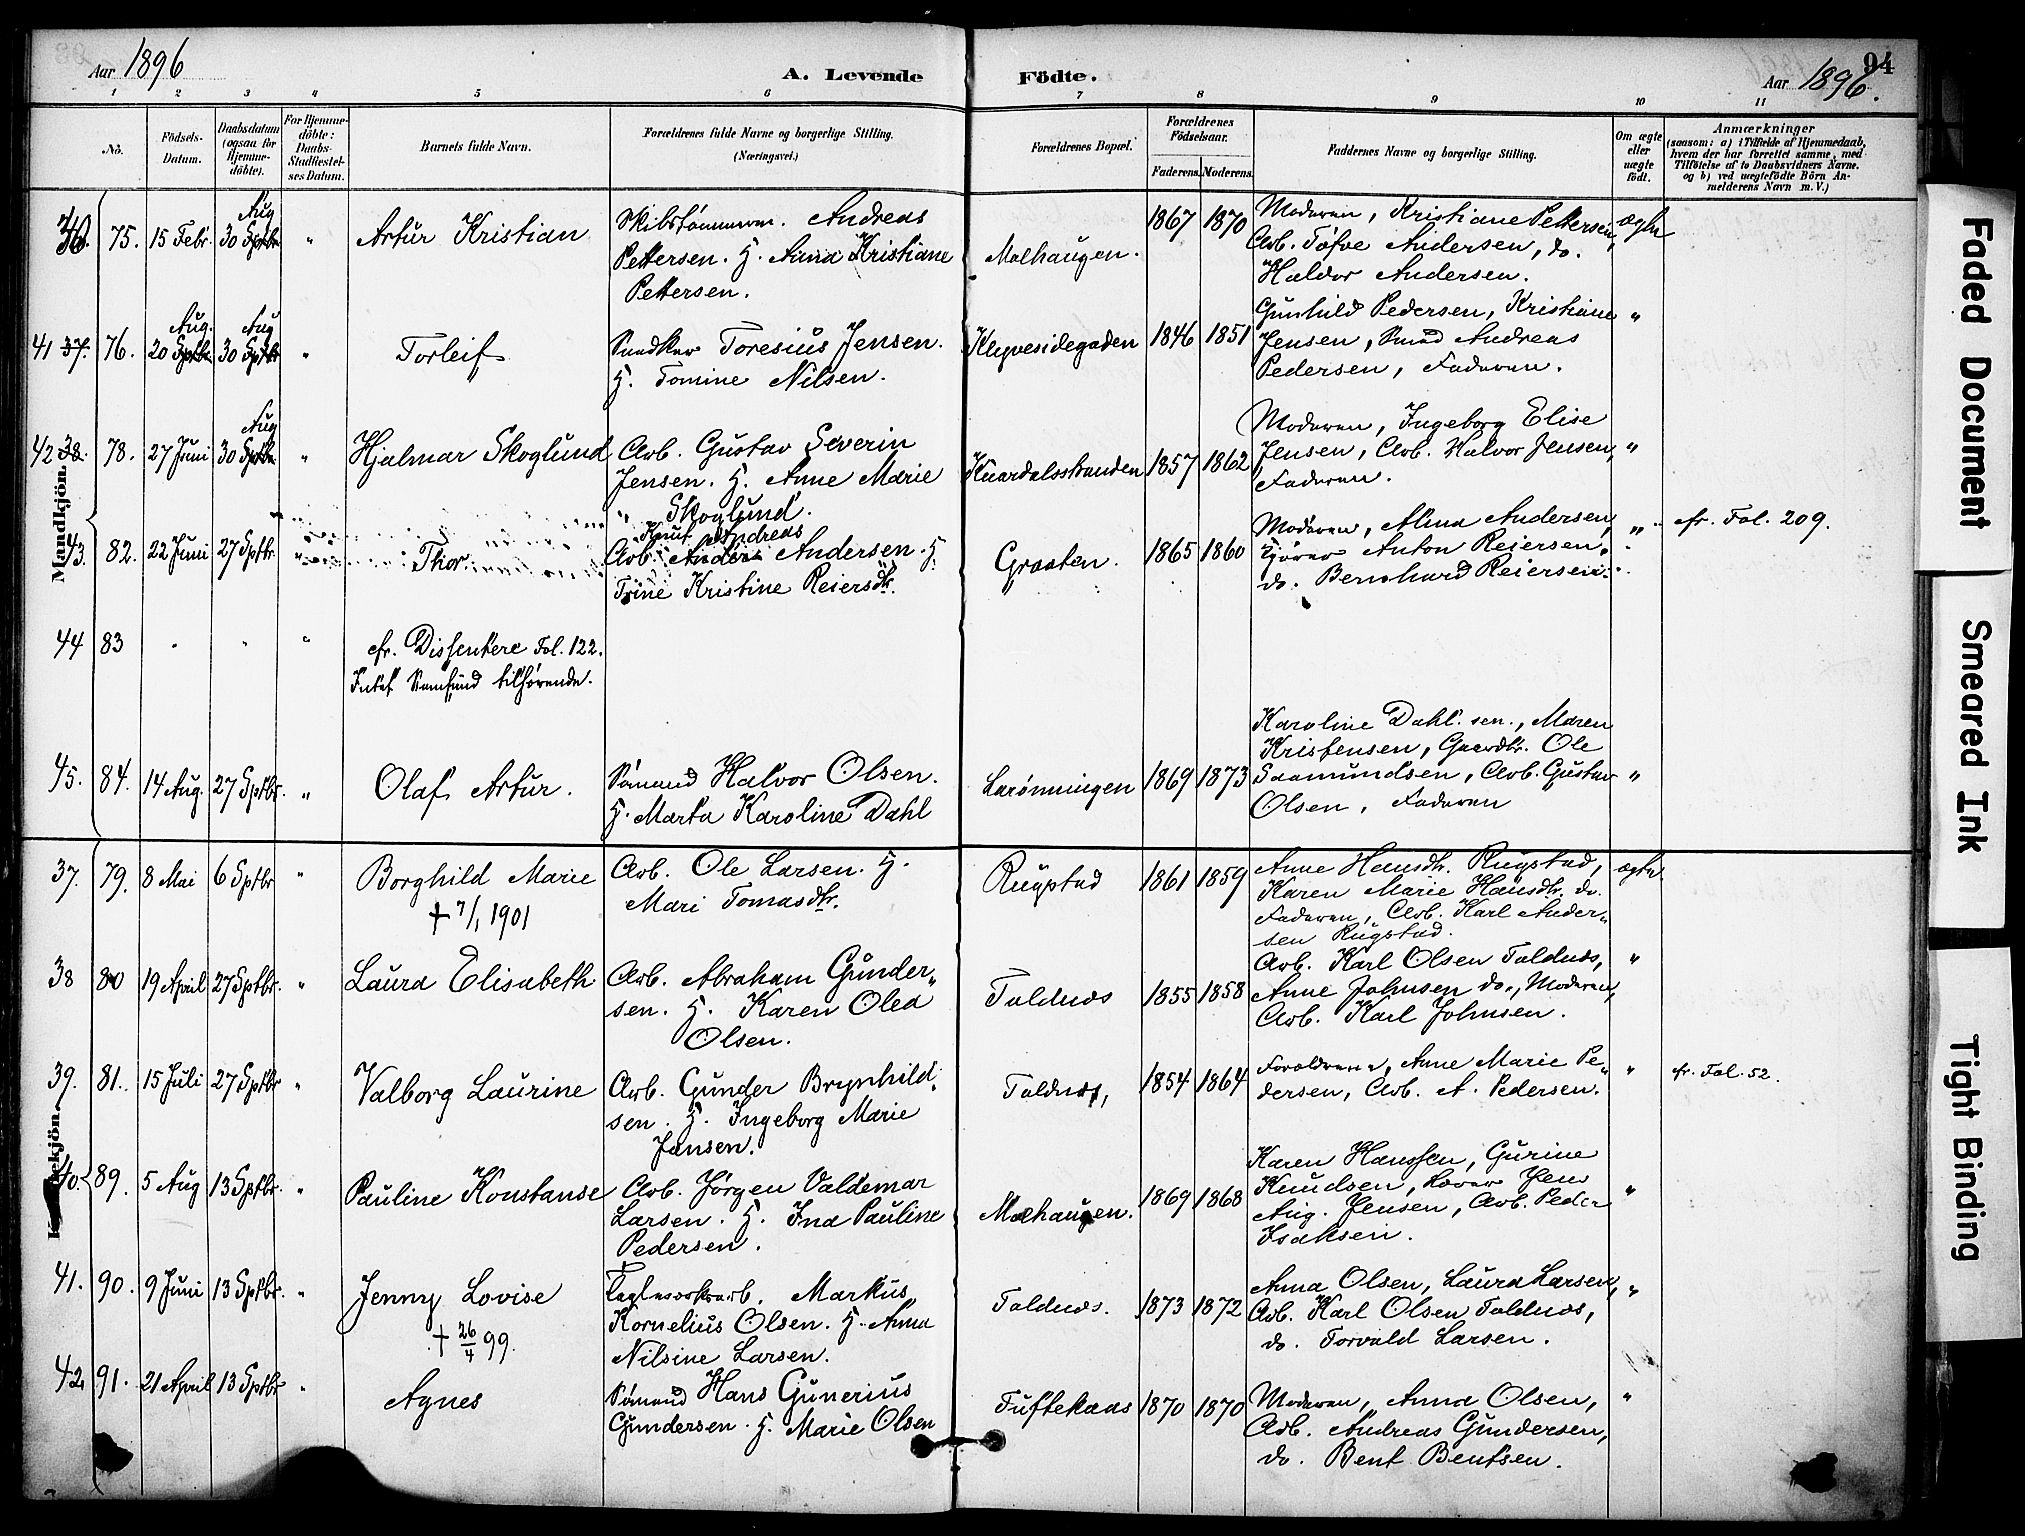 Aar 1896
A. Levende
Födte.
Aar 1896.
94
1 2 3 4 5 6 7 8 9 10 11
No.
Födsels-
Datum.
Daabsdatum
(ogsaa for
Hjemme-
döbte).
For Hjemme-
döbte:
Daabs-
Stadfæstel-
ses Datum.
Barnets fulde Navn.
Forældrenes fulde Navne og borgerlige Stilling.
(Næringsvei.)
Forældrenes Bopæl.
Forældrenes
Födselsaar.
Faderens. Moderens.
Faddernes Navne og borgerlige Stilling.
Om ægte
eller
uægte
födt.
Anmærkninger
(saasom: a) i Tilfælde af Hjemmedaab,
hvem der har forrettet samme, med
Tilföielse af to Daabsvidners Navne.
og b) ved uægtefödte Börn An-
melderens Navn m. V.)
Mandkjön.
40. 75. 15 Febr. 30 Aug Sptbr. " Artur Kristian
Skibstømmerm. Andreas
Pettersen. H. Anna Kristiane
Pettersen.
Mælhaugen. 1867 1870
Moderen, Kristiane Pettersen,
Arb. Tófve Andersen, do.
Haldor Andersen.
ægte
41 37. 76. 20 Aug. Sptbr. 30 Aug Sptbr " Torleif
Snedker Toresius Jensen.
H. Tomine Nilsen.
Klyvesidegaden 1846 1851
Gunhild Pedersen, Kristiane
Jensen, Smed Andreas
Pedersen, Faderen.
"
42 38. 78. 27 Juni 30 Aug Sptbr. " Hjalmar Skoglund
Arb. Gustav Severin
Jensen. H. Anne Marie
" Skoglund.
Knardalsstranden 1857 1862
Moderen, Ingeborg Elise
Jensen, Arb. Halvor Jensen,
Faderen.
"
43. 82. 22 Juni 27 Sptbr. " Thor.
Knut Andreas
Arb. Anders Andersen. H.
Trine Kristine Reiersdtr.
Graaten. 1865 1860
Moderen, Alma Andersen,
Kjører Anton Reiersen.
do. Bernhard Reiersen.
" cfr. Fol. 209.
44 83 " " "
cfr. Dissentere Fol. 122.
Intet Samfund tilhørende.
45. 84. 14 Aug. 27 Sptbr. " Olaf Artur.
Sømand Halvor Olsen.
H. Marta Karoline Dahl
Larønningen 1869 1873
Karoline Dahl. sen., Maren
Kristensen, Gaardbr. Ole
Saamundsen, Arb. Gustav
Olsen, Faderen
"
Kvindekjön.
37. 79. 8 Mai 6 Sptbr " Borghild Marie
† 7/1 1901
Arb. Ole Larsen. H.
Mari Tomasdtr.
Rugstad 1861 1859
Anne Hansdtr. Rugstad,
Karen Marie Hansdtr. do.
Faderen, Arb. Karl Ander-
sen Rugstad.
ægte.
38 80 19 April 27 Sptbr. " Laura Elisabeth
Arb. Abraham Gunder-
sen. H. Karen Olea
Olsen.
Toldnæs 1855 1858
Arb. Karl Olsen Toldnæs,
Anne Johnsen do., Moderen,
Arb. Karl Johnsen.
"
39. 81. 15 Juli 27 Sptbr " Valborg Laurine
Arb. Gunder Brynhild-
sen. H. Ingeborg Marie
Jansen.
Toldnæs, 1854 1864
Forældrene, Anne Marie Pe-
dersen, Arb. A. Pedersen.
" cfr. Fol. 52.
40. 89. 5 Aug 13 Sptbr. " Pauline Konstanse
Arb. Jørgen Valdemar
Larsen. H. Ina Pauline
Pedersen.
Mælhaugen. 1869 1868
Karen Hanssen, Gurine
Knudsen, Jens
Aug. Jensen, Arb. Peder
Isaksen.
"
41. 90. 9 Juni 13 Sptbr. " Jenny Lovise
† 26/4 99.
Teglværksarb. Markus
Kornelius Olsen. H. Anna
Nilsine Larsen.
Toldnæs. 1873 1872
Anna Olsen, Laura Larsen,
Arb. Karl Olsen Toldnæs,
do. Torvald Larsen.
"
42. 91. 21 April 13 Sptbr " Agnes
Sømand Hans Gunerius
Gundersen. H. Marie Olsen
Tuftekaas 1870 1870
Moderen, Anna Olsen,
Arb. Andreas Gundersen,
do. Bent Bentsen.
"
Faded Document
Smeared Ink
Tight Binding